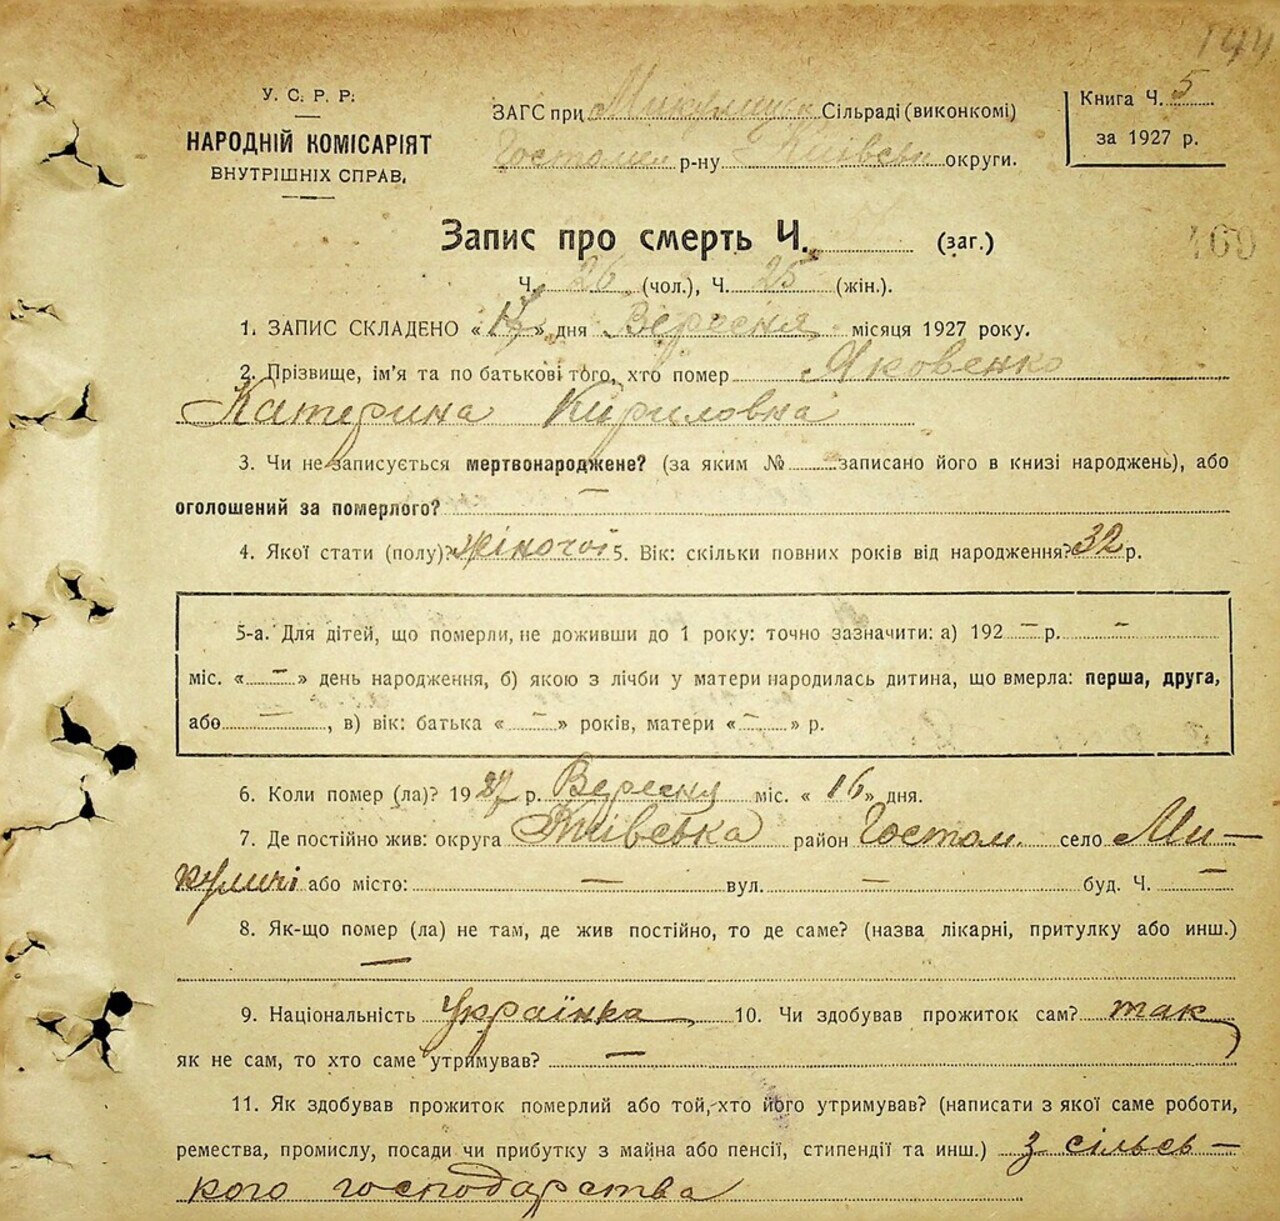 144
У. С. Р. Р.
НАРОДНІЙ КОМІСАРІЯТ
ВНУТРІШНІХ СПРАВ.
ЗАГС при Сільраді (виконкомі)
Гостомел р-ну Київськ округи.
Книга Ч. 5
за 1927 р.
Запис про смерть Ч. (заг.)
469
Ч. 26 (чол.), Ч. 25 (жін.).
1. ЗАПИС СКЛАДЕНО « » дня Вересня місяця 1927 року.
2. Прізвище, ім'я та по батькові того, хто помер Яковенко
Катерина Кириловна
3. Чи не записується мертвонароджене? (за яким № записано його в книзі народжень), або
оголошений за померлого? —
4. Якої стати (полу)? жіночої 5. Вік: скільки повних років від народження? 32 р.
5-а. Для дітей, що померли, не доживши до 1 року: точно зазначити: а) 192 — р. —
міс. « — » день народження, б) якою з лічби у матери народилась дитина, що вмерла: перша, друга,
або — , в) вік: батька « — » років, матери « — » р.
6. Коли помер (ла)? 1927 р. Вересня міс. « 16 » дня.
7. Де постійно жив: округа Київська район Гостом. село Ми-
куличі або місто: — вул. — буд. Ч. —
8. Як-що помер (ла) не там, де жив постійно, то де саме? (назва лікарні, притулку або инш.)
—
9. Національність Українка 10. Чи здобував прожиток сам? так
як не сам, то хто саме утримував? —
11. Як здобував прожиток померлий або той, хто його утримував? (написати з якої саме роботи,
ремества, промислу, посади чи прибутку з майна або пенсії, стипендії та инш.) з сільсь-
кого господарства